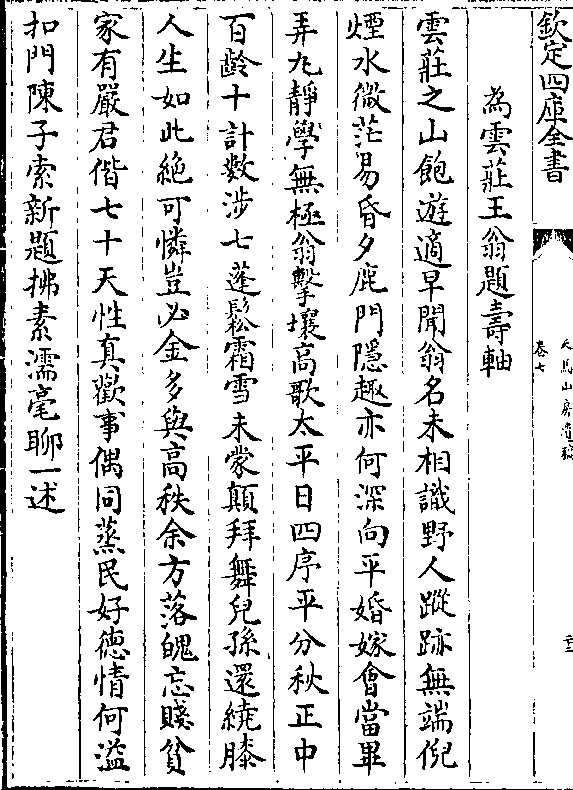 欽定四庫全書
天馬山房遺稿
卷七
為雲莊王翁題壽軸
雲莊之山飽遊適早聞翁名未相識野人蹤跡無端倪
煙水微茫易昏夕鹿門隱趣亦何深向平婚嫁會當畢
弄九靜學無極翁擊壤高歌太平日四序平分秋正中
百齡十計數涉七蓬鬆霜雪未蒙顛拜舞兒孫還繞膝
人生如此絶可憐豈必金多與高秩余方落魄忘賤貧
家有嚴君偕七十天性真歡事偶同蒸民好德情何溢
扣門陳子索新題拂素濡毫聊一述